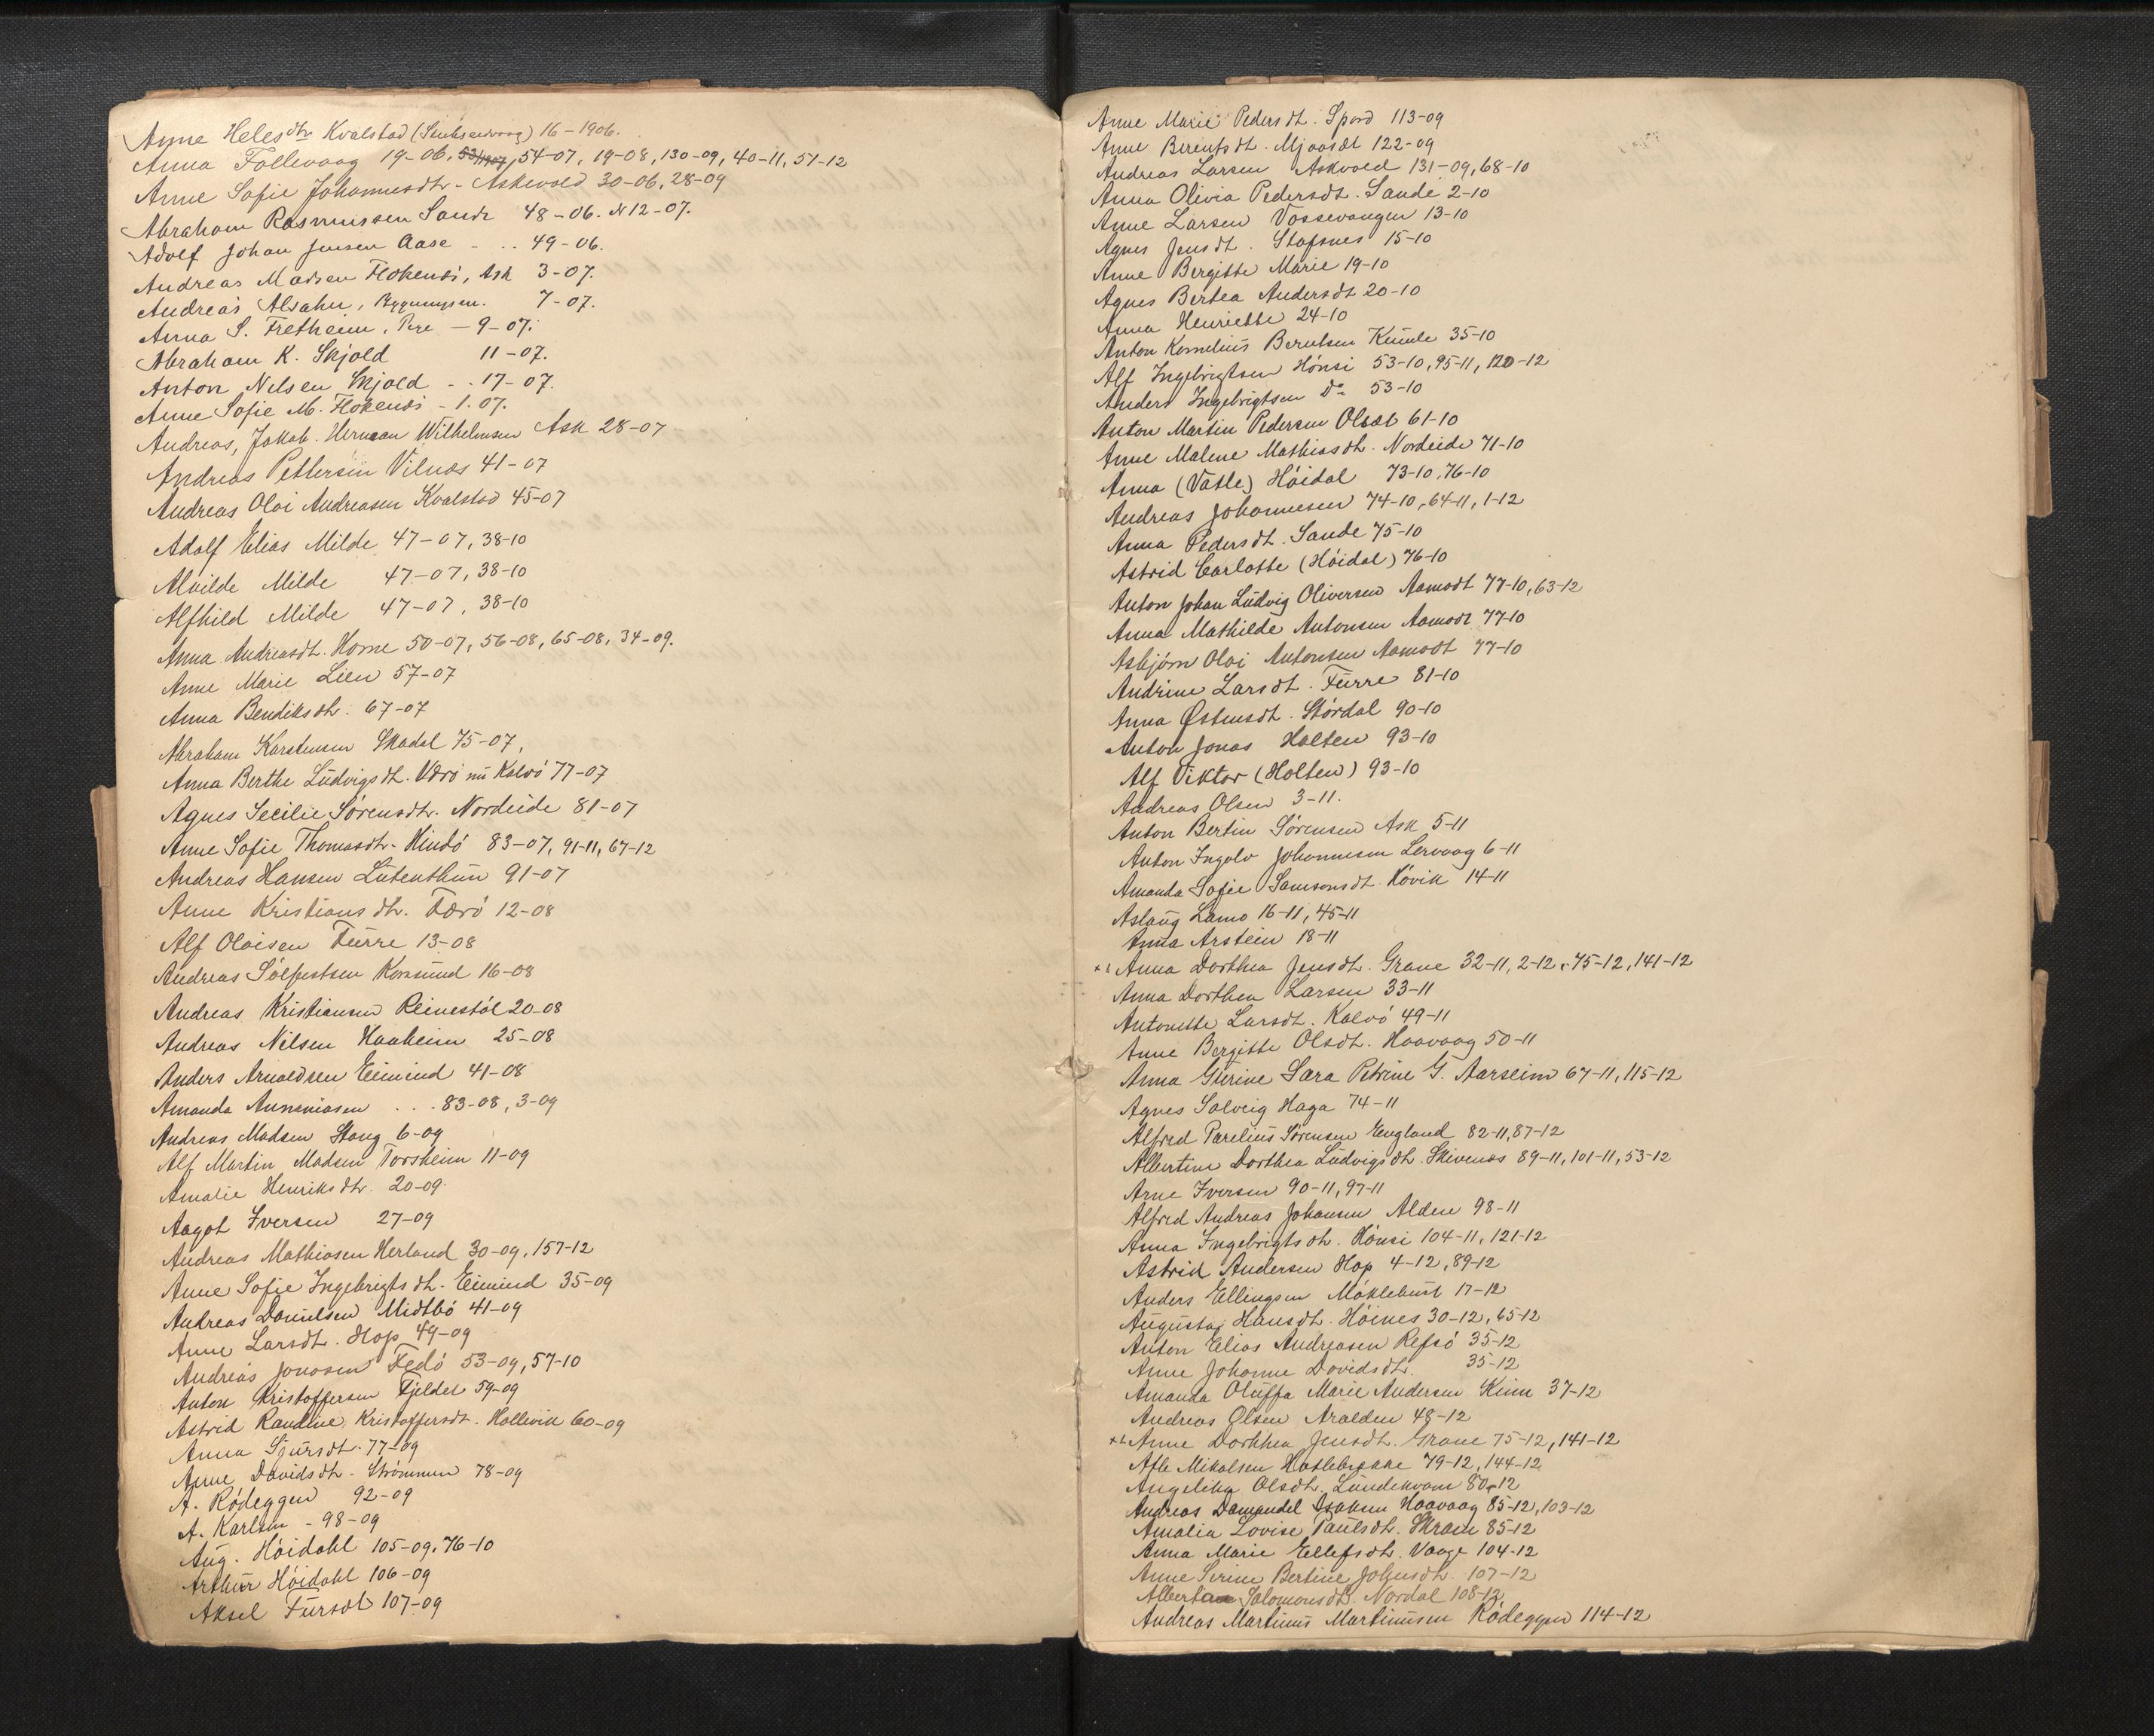 Anne Helesdtr Kvalstad 16-1906.
Anna Follevaag 19-06, 53/1907, 54-07, 19-08, 130-09, 40-11, 51-12
Anne Sofie Johannesdtr. Askevold 30-06, 28-09
Abraham Rasmussen Sande 48-06. N 12-07.
Adolf Johan Jensen Aase - .. 49-06.
Andreas Madsen Flokenesi, Ask 3-07.
Andreas Alsaker, 7-07.
Anna S. Fretheim, - 9-07.
Abraham K. Skjold 11-07.
Anton Nelsen Skjold - .. 17-07.
Anne Sofie M. Flokenesi - 1.07.
Andreas, Jakob. Herman Wilhelmsen Ask 28-07
Andreas Pettersen Vilnæs 41-07
Andreas Olai Andreasen Kvalstad 45-07
Adolf Elias Milde 47-07, 38-10
Alvilde Milde 47-07, 38-10
Alfhild Milde 47-07, 38-10
Anna Andreasdt. Horne 50-07, 56-08, 65-08, 34-09.
Anne Marie Lien 57-07
Anna Bendiksdtr. 67-07
Abraham Karstensen Skadal 75-07,
Anna Berthe Ludvigsdt. Værö nu Kalvö 77-07
Agnes Secilie Sörensdtr. Nordeide 81-07
Anne Sofie Thomasdtr. Hindö 83-07, 91-11, 67-12
Andreas Hansen Lutenthun 91-07
Anne Kristiansdtr. Værö 12-08
Alf Olaisen Furre 13-08
Andreas Solfestsen Korssund 16-08
Andreas Kristiansen Reinestöl 20-08
Andreas Nilsen Haaheim 25-08
Anders Arnoldsen Eimind 41-08
Amanda Annaniasen . . . 83-08, 3-09
Andreas Madsen Stang 6-09
Alf Martin Madsen Torsheim 11-09
Amalie Henriksdtr. 20-09
Aagot Iversen 27-09
Andreas Mathiasen Herland 30-09, 157-12
Anne Sofie Ingebrigtsdt. Eimind 35-09
Andreas Danielsen Midtbö 41-09
Anne Larsdt. Hop 49-09
Andreas Jonasen Fedö 53-09, 57-10
Anton Kristoffersen Fjeldet 59-09
Astrid Randine Kristoffersdt. Hollevik 60-09
Anna Sjursdt. 77-09
Anne Davidsdt. Strömmen 78-09
A. Rödeggen 92-09
A. Karlsen - 98-09
Aug. Höidahl 105-09, 76-10
Arthur Höidahl 106-09
Aksel Fursdt 107-09
Anne Marie Pedersdt. Spord 113-09
Anne Berentsdt. Mjaasæt 122-09
Andreas Larsen Askvold 131-09, 68-10
Anna Olivia Pedersdt. Sande 2-10
Anne Larsen Vossevangen 13-10
Agnes Jensdt. Stafsnes 15-10
Anne Bergitte Marie 19-10
Agnes Bertea Andersdt 20-10
Anna Henriette 24-10
Anton Kornelius Berntsen Kumle 35-10
Alf Ingebrigtsen Hönsi 53-10, 95-11, 120-12
Anders Ingebrigtsen Do 53-10
Anton Martin Pedersen Olset 61-10
Anne Malene Mathiasdt. Nordeide 71-10
Anna (Vatle) Höidal 73-10, 76-10
Andreas Johannesen 74-10, 64-11, 1-12
Anna Pedersdt. Sande 75-10
Astrid Carlotte (Höidal) 76-10
Anton Johan Ludvig Oliversen Aamodt 77-10, 63-12
Anna Mathilde Antonsen Aamodt 77-10
Asbjörn Olai Antonsen Aamodt 77-10
Andrine Larsdt. Furre 81-10
Anna Østensdt. Stördal 90-10
Anton Jonas Holten 93-10
Alf Viktor (Holten) 93-10
Andreas Olsen 3-11.
Anton Bertin Sörensen Ask 5-11
Anton Ingolv Johannesen Lervaag 6-11
Amanda Sofie Samsonsdt. Hövik 14-11
Aslaug Lamo 16-11, 45-11
Anna Arstein 18-11
Anna Dorthea Jensdt. Grane 32-11, 2-12, 75-12, 141-12
Anna Dorthea Larsen 33-11
Antonette Larsdt. Kalvö 49-11
Anne Bergitte Olsdt. Haavaag 50-11
Anna Gurine Sara Petrine G. Aarseim 67-11, 115-12
Agnes Solveig Haga 74-11
Alfred Parelius Sörensen England 82-11, 87-12
Albertine Dorthea Ludvigsdt. Skivenæs 89-11, 101-11, 53-12
Arne Iversen 90-11, 97-11
Alfred Andreas Johansen Alden 98-11
Anna Ingebrigtsdt. Hönsi 104-11, 121-12
Astrid Andersen Hop 4-12, 89-12
Anders Ellingsen Möklebust 17-12
Augusta Hansdt. Höines 30-12, 65-12
Anton Elias Andreasen Refsö 35-12
Anne Johanne Davidsdt. 35-12
Amanda Oluffa Marie Andersen Kinn 37-12
Andreas Olsen Aralden 48-12
Anne Dorthea Jensdt. Grane 75-12, 141-12
Atle Mikalsen Hatlebrekke 79-12, 144-12
Angelika Olsdt. Lundekvam 80-12
Andreas Isaksen Haavaag 85-12, 103-12
Amalia Lovise Paulsdt. Skram 85-12
Anna Marie Ellefsdt. Vaage 104-12
Anne Serine Bertine Johnsdt. 107-12
Salomonsdt. Nordal 108-12
Andreas Martinus Martinusen Rödeggen 114-12